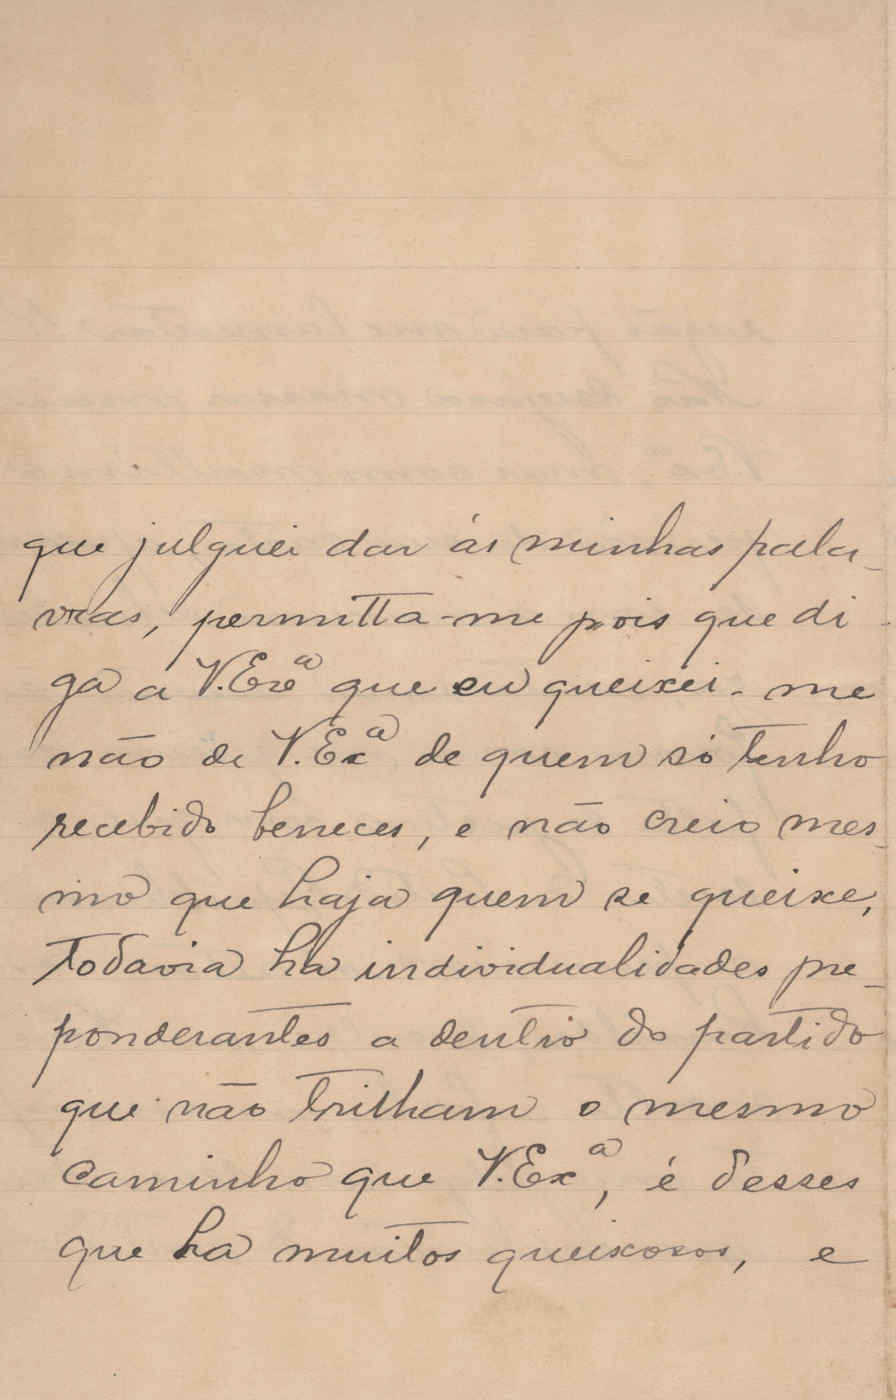 que julguei dar ás minhas pala-
vras, permitta-me pois que di-
ga a V. Exª que eu queixei-me
não de V. Exª de quem só tenho
recebido beneces, e não creio mes-
mo que haja quem se queixe,
todavia ha individualidades pre-
ponderantes a dentro do partido
que não trilham o mesmo
caminho que V. Exª, é desses
que ha muitos queixosos, e